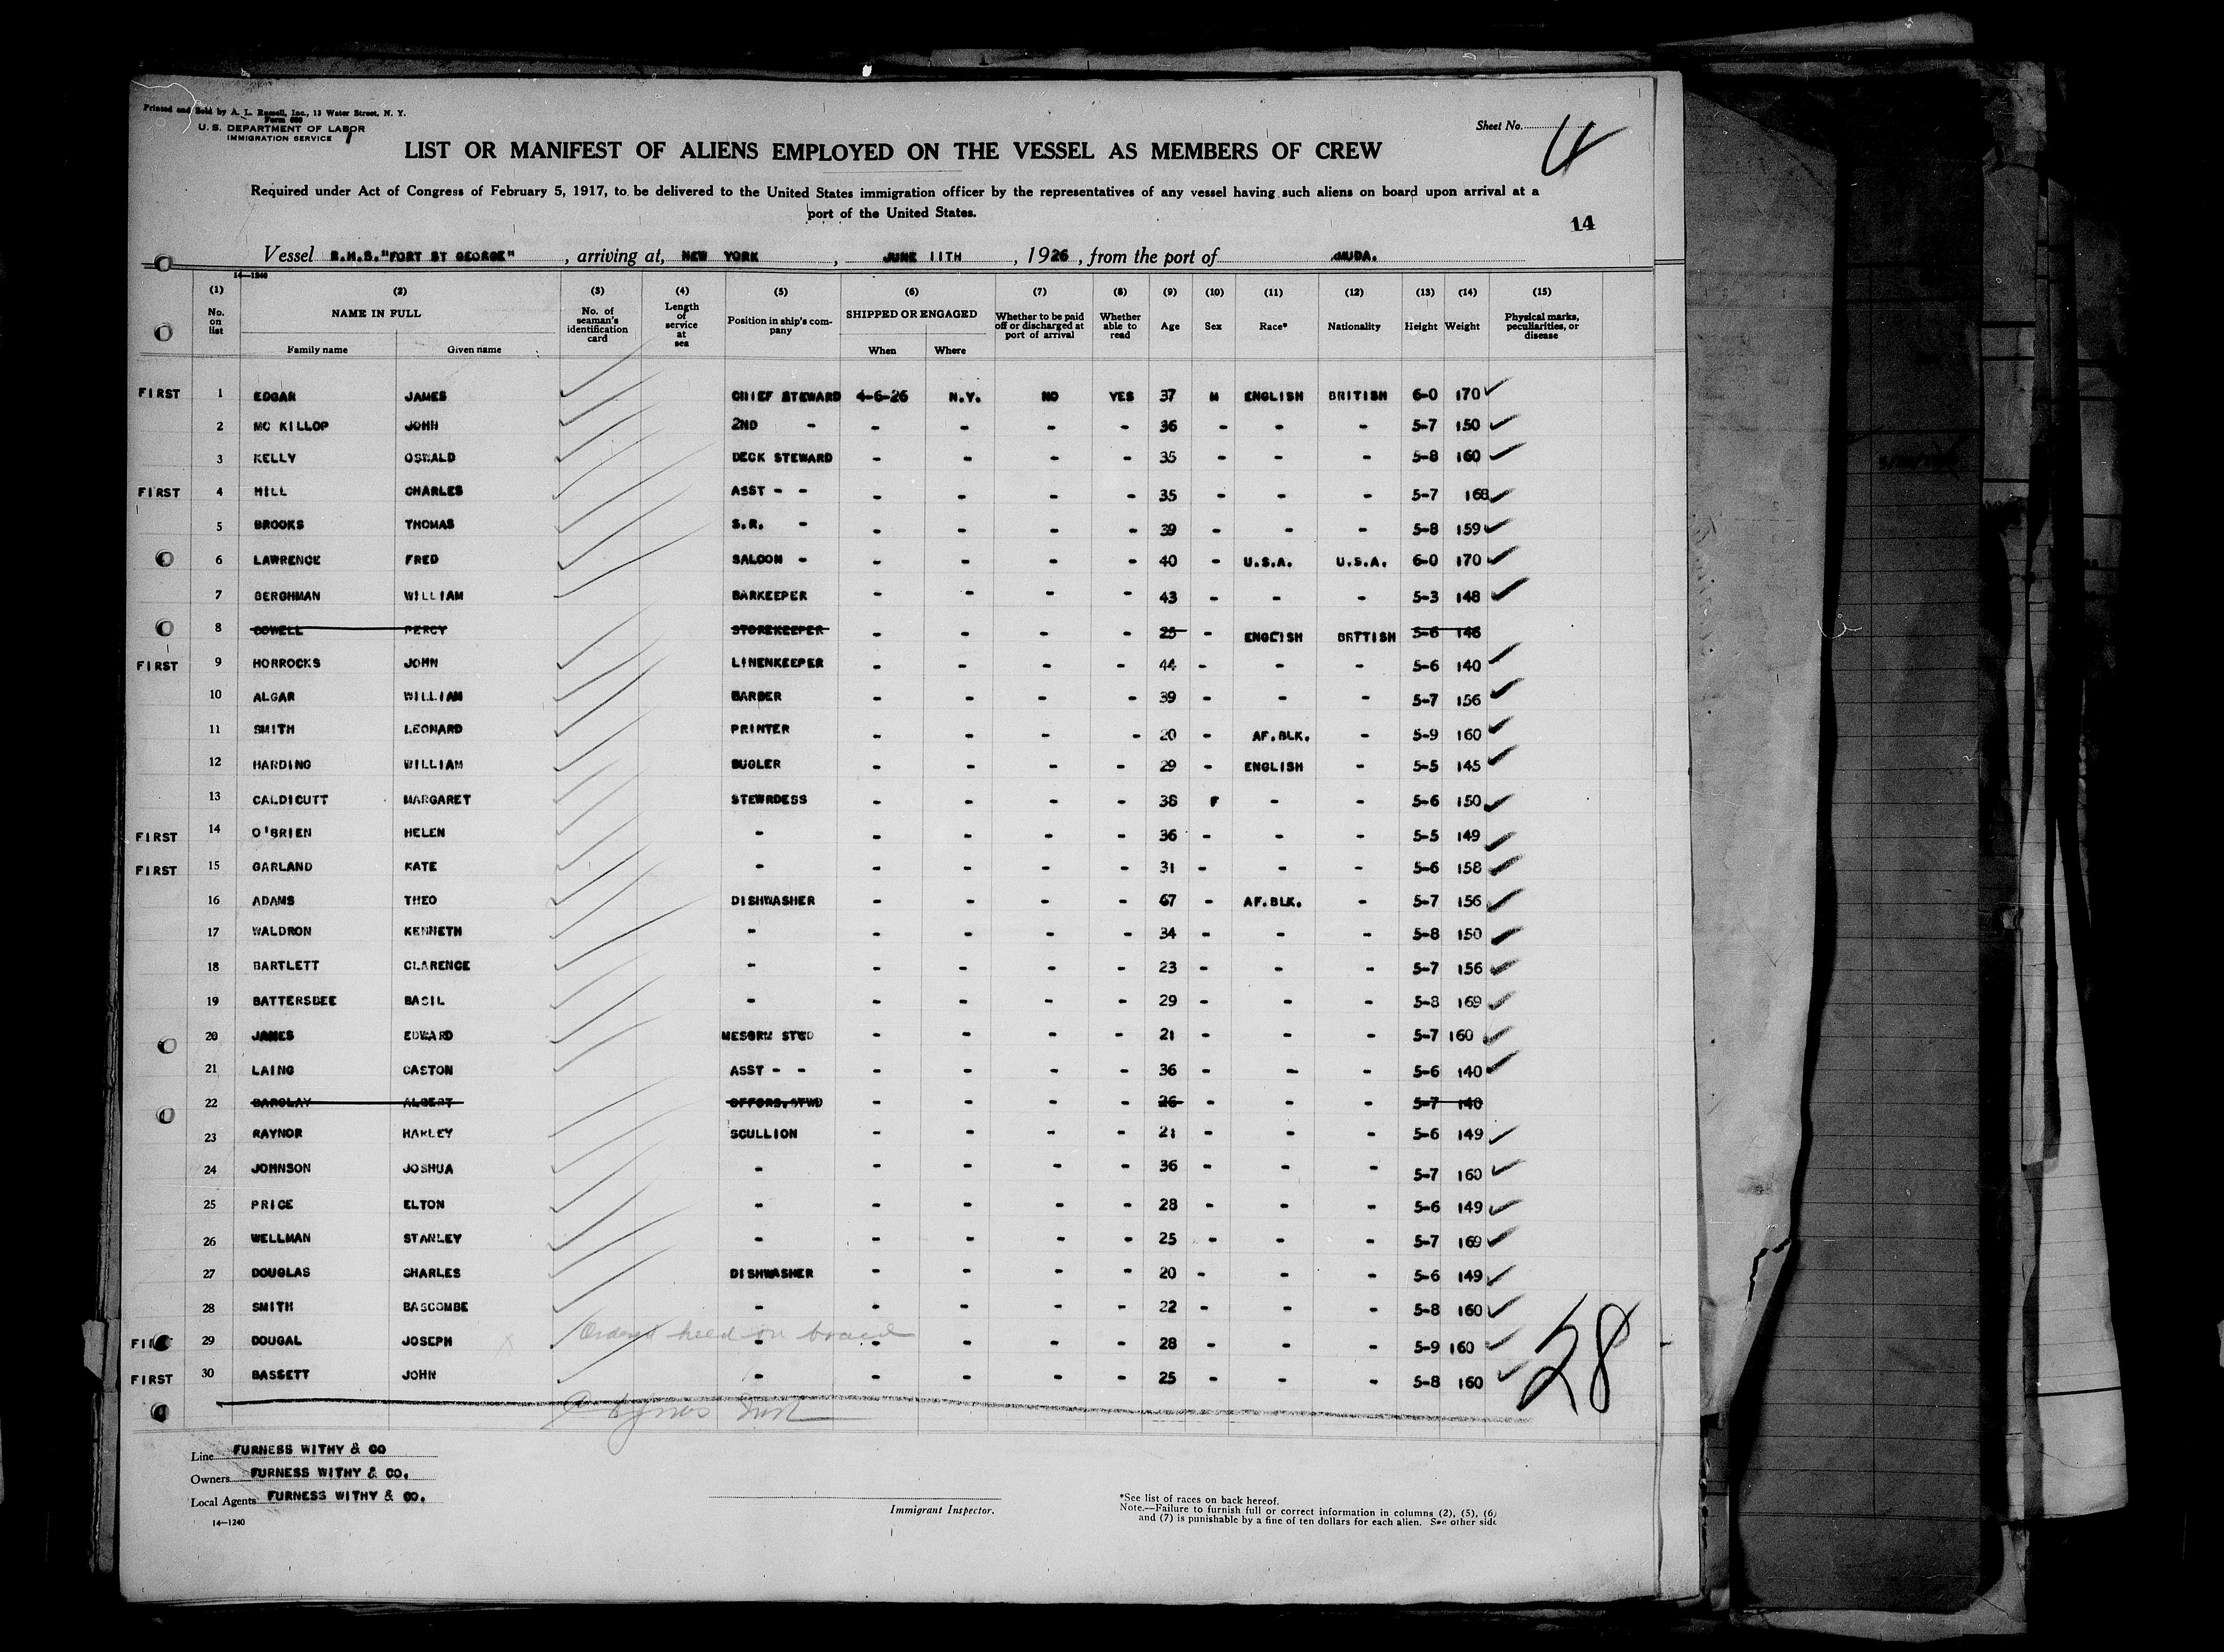 Printed and Sold by A. L. Russell, Inc., 13 Water Street, N. Y.
U. S. DEPARTMENT OF LABOR
IMMIGRATION SERVICE
Sheet No. 4
LIST OR MANIFEST OF ALIENS EMPLOYED ON THE VESSEL AS MEMBERS OF CREW
Required under Act of Congress of February 5, 1917, to be delivered to the United States immigration officer by the representatives of any vessel having such aliens on board upon arrival at a
port of the United States.
14
Vessel R.M.S."FORT ST GEORGE" , arriving at, NEW YORK , JUNE 11TH , 1926 , from the port of MUDA.
14—1240
(1) (2) (3) (4) (5) (6) (7) (8) (9) (10) (11) (12) (13) (14) (15)
No. on list NAME IN FULL Family name Given name No. of seaman's identification card Length of service at sea Position in ship's company SHIPPED OR ENGAGED When Where Whether to be paid off or discharged at port of arrival Whether able to read Age Sex Race* Nationality Height Weight Physical marks, peculiarities, or disease
FIRST 1 EDGAR JAMES CHIEF STEWARD 4-6-26 N.Y. NO YES 37 M ENGLISH BRITISH 6-0 170
2 MC KILLOP JOHN 2ND - - - - - 36 - - - 5-7 150
3 KELLY OSWALD DECK STEWARD - - - - 35 - - - 5-8 160
FIRST 4 HILL CHARLES ASST - - - - - - 35 - - - 5-7 168
5 BROOKS THOMAS S.R. - - - - - 39 - - - 5-8 159
6 LAWRENCE FRED SALOON - - - - - 40 - U.S.A. U.S.A. 6-0 170
7 BERGHMAN WILLIAM BARKEEPER - - - - 43 - - - 5-3 148
8 COWELL PERCY STOREKEEPER - - - - 25 - ENGLISH BRITISH 5-6 146
FIRST 9 HORROCKS JOHN LINENKEEPER - - - - 44 - - - 5-6 140
10 ALGAR WILLIAM BARBER - - - - 39 - - - 5-7 156
11 SMITH LEONARD PRINTER - - - - 20 - AF.BLK. - 5-9 160
12 HARDING WILLIAM BUGLER - - - - 29 - ENGLISH - 5-5 145
13 CALDICUTT MARGARET STEWRDESS - - - - 38 F - - 5-6 150
FIRST 14 O'BRIEN HELEN - - - - - 36 - - - 5-5 149
FIRST 15 GARLAND KATE - - - - - 31 - - - 5-6 158
16 ADAMS THEO DISHWASHER - - - - 67 - AF.BLK. - 5-7 156
17 WALDRON KENNETH - - - - - 34 - - - 5-8 150
18 BARTLETT CLARENCE - - - - - 23 - - - 5-7 156
19 BATTERSBEE BASIL - - - - - 29 - - - 5-8 169
20 JAMES EDWARD MESSRM STWD - - - - 21 - - - 5-7 160
21 LAING GASTON ASST - - - - - - 36 - - - 5-6 140
22 BARCLAY ALBERT OFFCRS.STWD - - - - 26 - - - 5-7 140
23 RAYNOR HARLEY SCULLION - - - - 21 - - - 5-6 149
24 JOHNSON JOSHUA - - - - - 36 - - - 5-7 160
25 PRICE ELTON - - - - - 28 - - - 5-6 149
26 WELLMAN STANLEY - - - - - 25 - - - 5-7 169
27 DOUGLAS CHARLES DISHWASHER - - - - 20 - - - 5-6 149
28 SMITH BASCOMBE - - - - - 22 - - - 5-8 160
Ordered held on board
29 DOUGAL JOSEPH - - - - - 28 - - - 5-9 160
FIRST 30 BASSETT JOHN - - - - - 25 - - - 5-8 160
28
Line FURNESS WITHY & CO
Owners FURNESS WITHY & CO.
Local Agents FURNESS WITHY & CO.
14—1240
Immigrant Inspector.
*See list of races on back hereof.
Note.—Failure to furnish full or correct information in columns (2), (5), (6)
and (7) is punishable by a fine of ten dollars for each alien. See other side